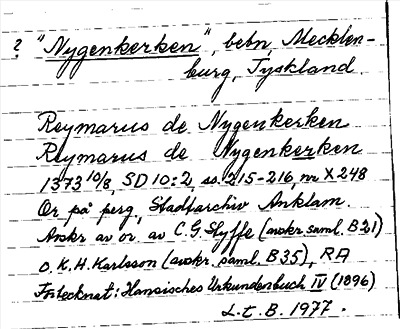 ? "Nygenkerken", bebn, Mecklen-
burg, Tyskland
Reymarus de Nygenkerken
Reymarus de Nygenkerken
1373 10/8, SD 10:2, ss. 215-216, nr X 248
Or på perg., Stadtarchiv Anklam.
Avskr av or. av C G Styffe (avskr. saml. B 21)
o. K. H. Karlsson (avskr. saml. B 35), RA
Förtecknat: Hansisches Urkundenbuch IV (1896)
L. t. B. 1977.